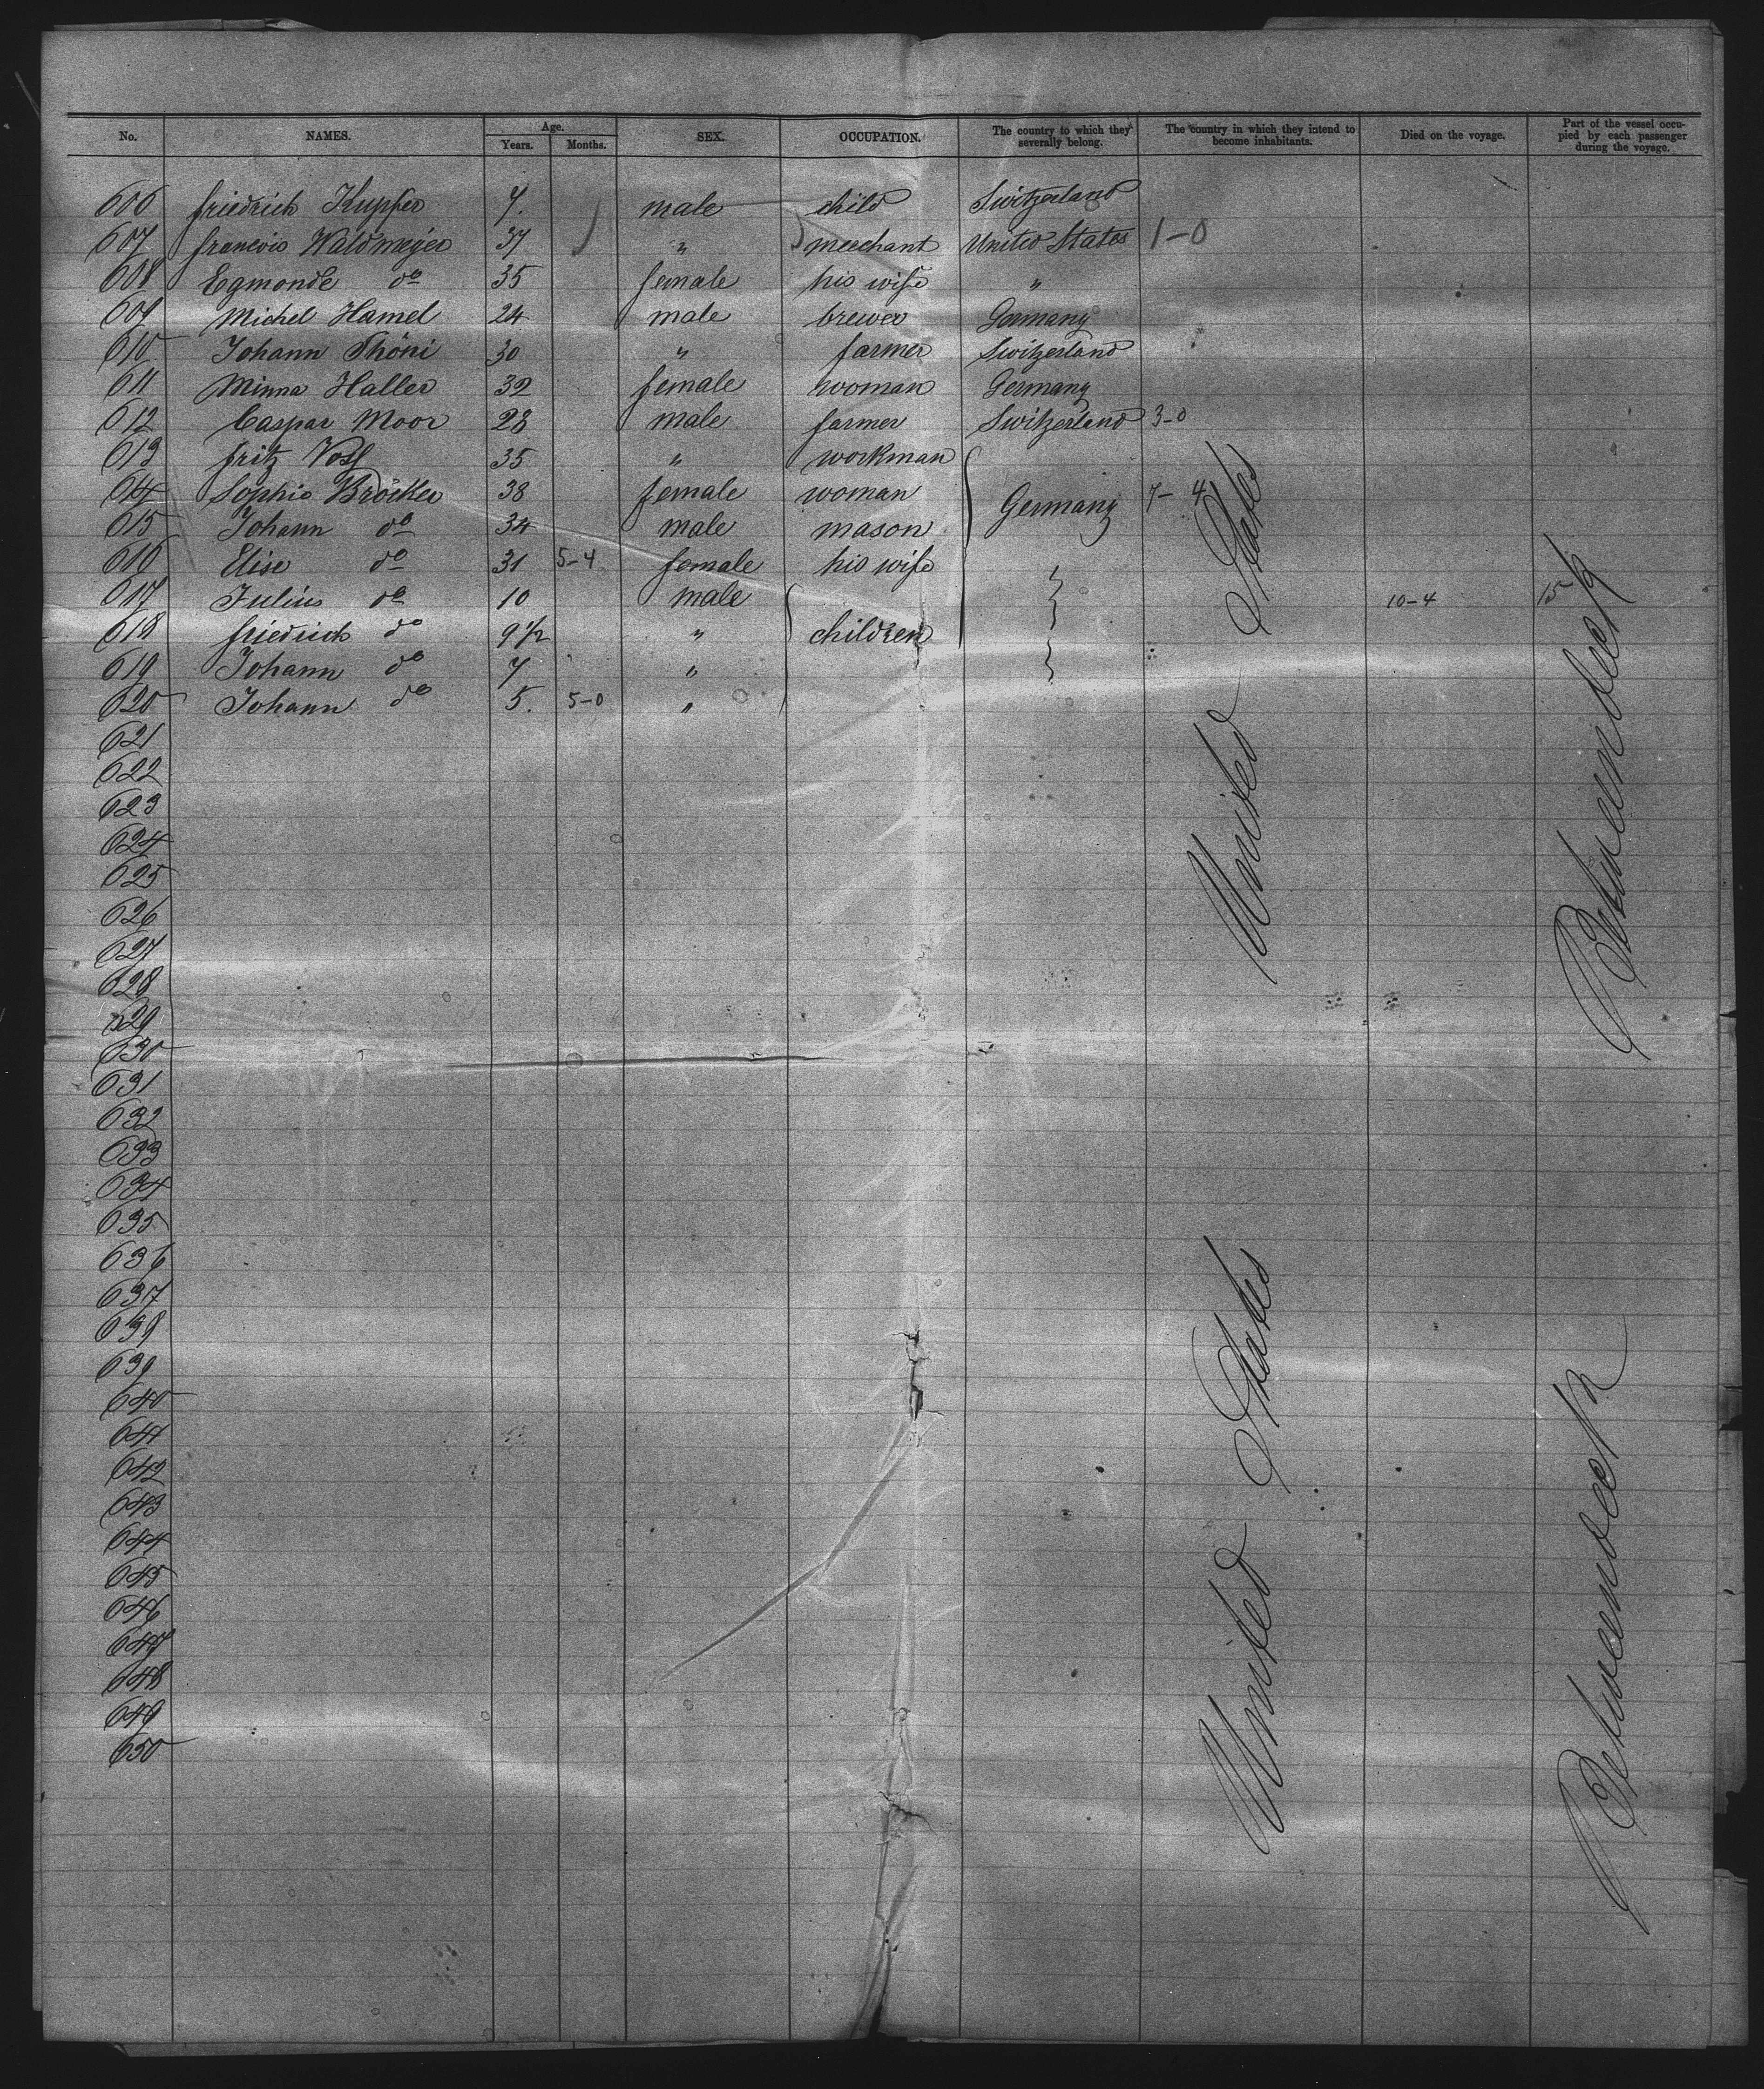 No. NAMES. Age. Years. Months. SEX. OCCUPATION. The country to which they severally belong. The country in which they intend to become inhabitants. Died on the voyage. Part of the vessel occupied by each passenger during the voyage.
606 friedrich Kupfer 7. male child Switzerland
607 francois Waldmeyer 37 " merchant United States 1-0
608 Egmonde do 35 female his wife "
609 Michel Hamel 24 male brewer Germany
610 Johann Thöni 30 " farmer Switzerland
611 Minna Haller 32 female woman Germany
612 Caspar Moor 28 male farmer Switzerland 3-0
613 fritz Voss 35 " workman
614 Sophie Bröcker 38 female woman Germany 7-4
615 Johann do 34 male mason
616 Elise do 31 5-4 female his wife
617 Julius do 10 male 10-4 15
618 friedrich do 9 1/2 " children
619 Johann do 7 "
620 Johann do 5. 5-0 "
621
622
623
624
625
626
627
628
629
630
631
632
633
634
635
636
637
638
639
640
641
642
643
644
645
646
647
648
649
650
United States
Betweendeck
United States
Betweendeck